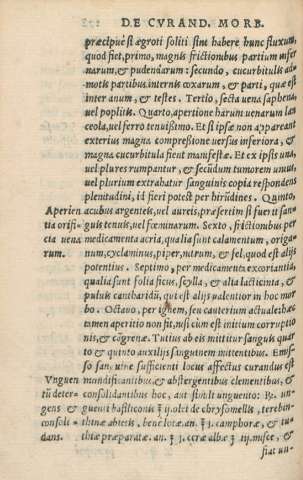 DE CVRAND. MORB.
præcipuè si ægroti soliti sint habere hunc fluxum,
quod fiet, primo, magnis frictionibus partium infer
narum, & pudendarum: secundo, cucurbitulis ad-
motis partibus internis coxarum, & parti, quæ est
inter anum, & testes. Tertio, secta uena saphena,
uel poplitis. Quarto, apertione harum uenarum lan
ceola, uel ferro tenuißimo. Et si ipsæ non appareant
exterius magna compreßione uersus inferiora, &
magna cucurbitula fient manifestæ. Et ex ipsis una,
uel plures rumpantur, & secūdum tumorem unius,
uel plurium extrahatur sanguinis copia respondens
plenitudini, id fieri potest per hirudines. Quinto,
Aperien
tia orifi-
cia uena
rum.
acubus argenteis, uel aureis, præsertim si fuerit san-
guis tenuis, uel fœminarum. Sexto, frictionibus per
medicamenta acria, qualia sunt calamentum, origa-
num, cyclaminus, piper, nitrum, & fel, quod est alijs
potentius. Septimo, per medicamenta excoriantia,
qualia sunt folia ficus, scylla, & alia lacticinia, &
puluis cantharidū, qui est alijs ualentior in hoc mor
bo. Octauo, per ignem, seu cauterium actuale: hæc
tamen apertio non fit, nisi cum est initium corruptio
nis, & cāgrenæ. Tutius ab eis mittitur sanguis quar
to & quinto auxilijs sanguinem mittentibus. Emis-
so sanguine sufficienti locus affectus curandus est
Vnguen
tū deter-
gens &
consoli-
dans.
mundificantibus, & abstergentibus clementibus, &
consolidantibus hoc, aut simili unguento: ℞. un-
guenti basiliconis ʒ ij. olei de chrysomellis, terebin-
thinæ abietis, benè lotæ. an. ʒ j. camphoræ, & tu-
thiæ præparatæ. an. ʒ j. ceræ albæ ʒ iij. misce, &
fiat un-